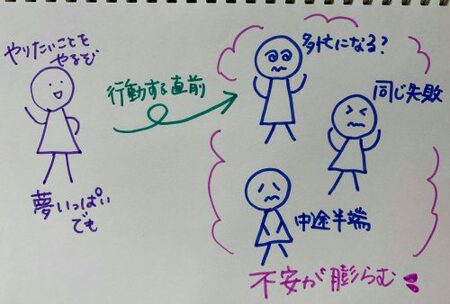 やりたいことを
やるぞ
夢いっぱい
でも
行動する直前
多忙になる?
同じ失敗
中途半端
不安が膨らむ